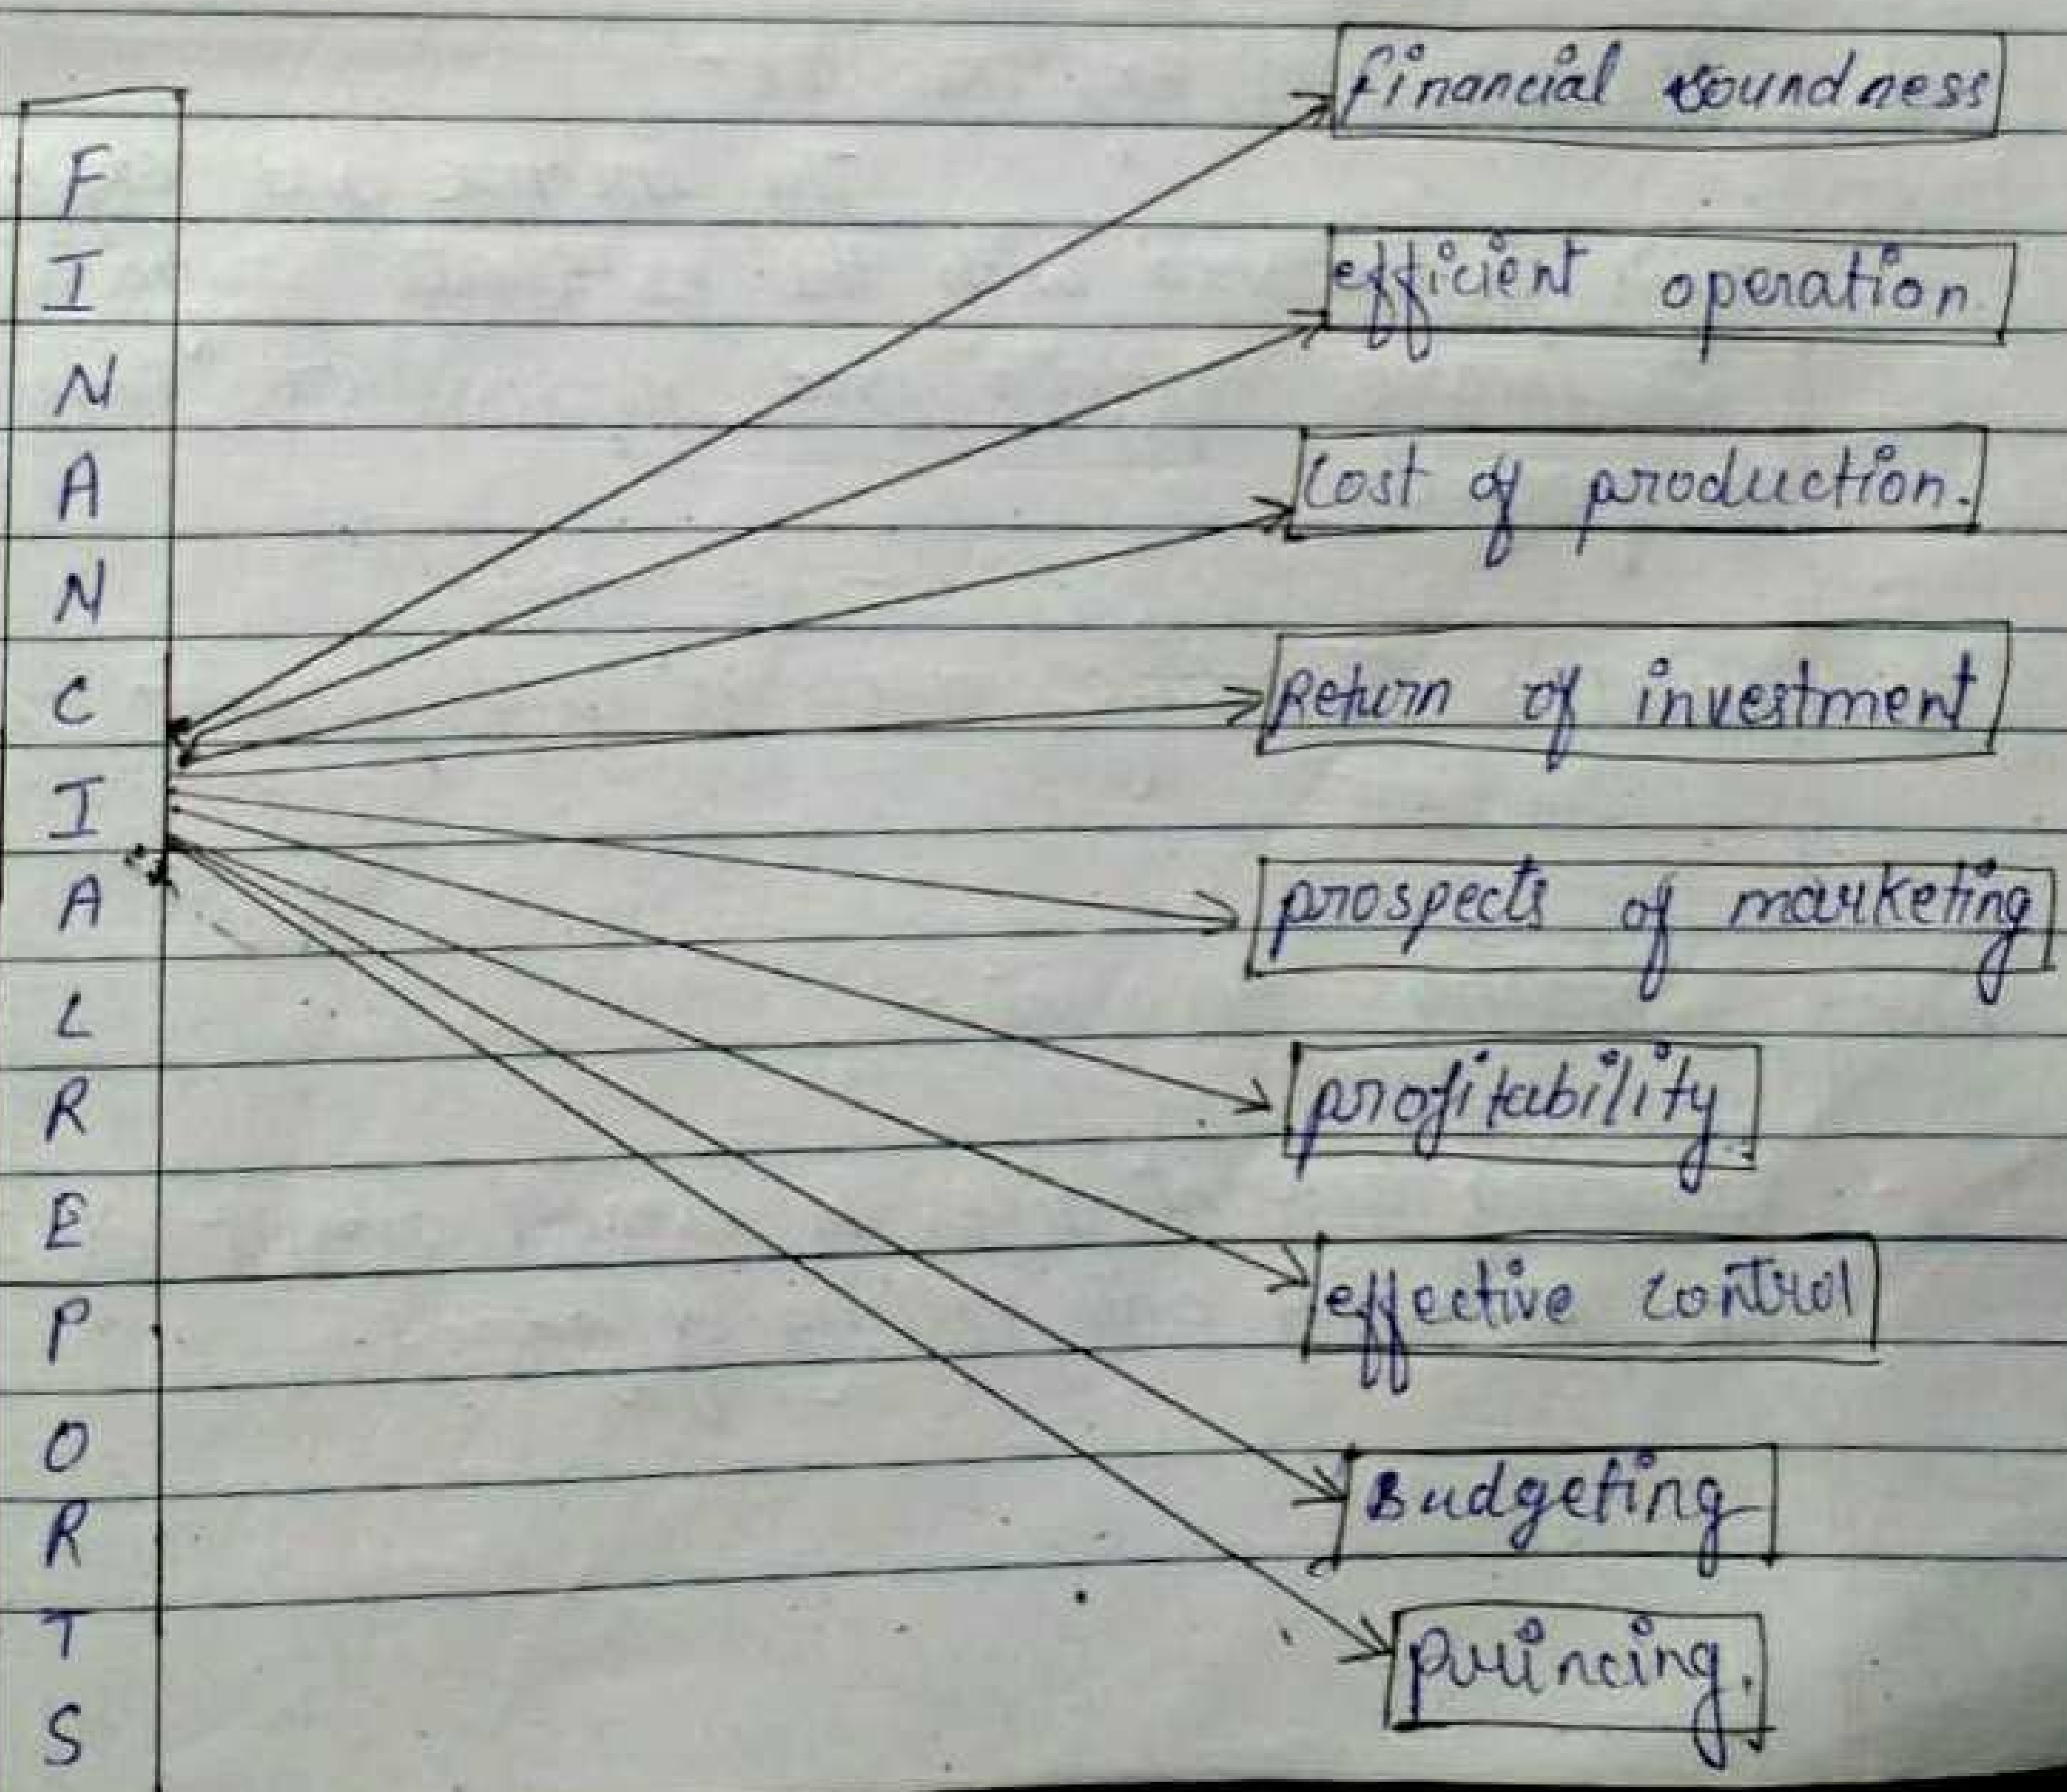 F
I
N
A
N
C
I
A
L
R
E
P
O
R
T
S
financial soundness
efficient operation
Cost of production.
Return of investment
prospects of marketing
profitability
effective control
Budgeting
princing.